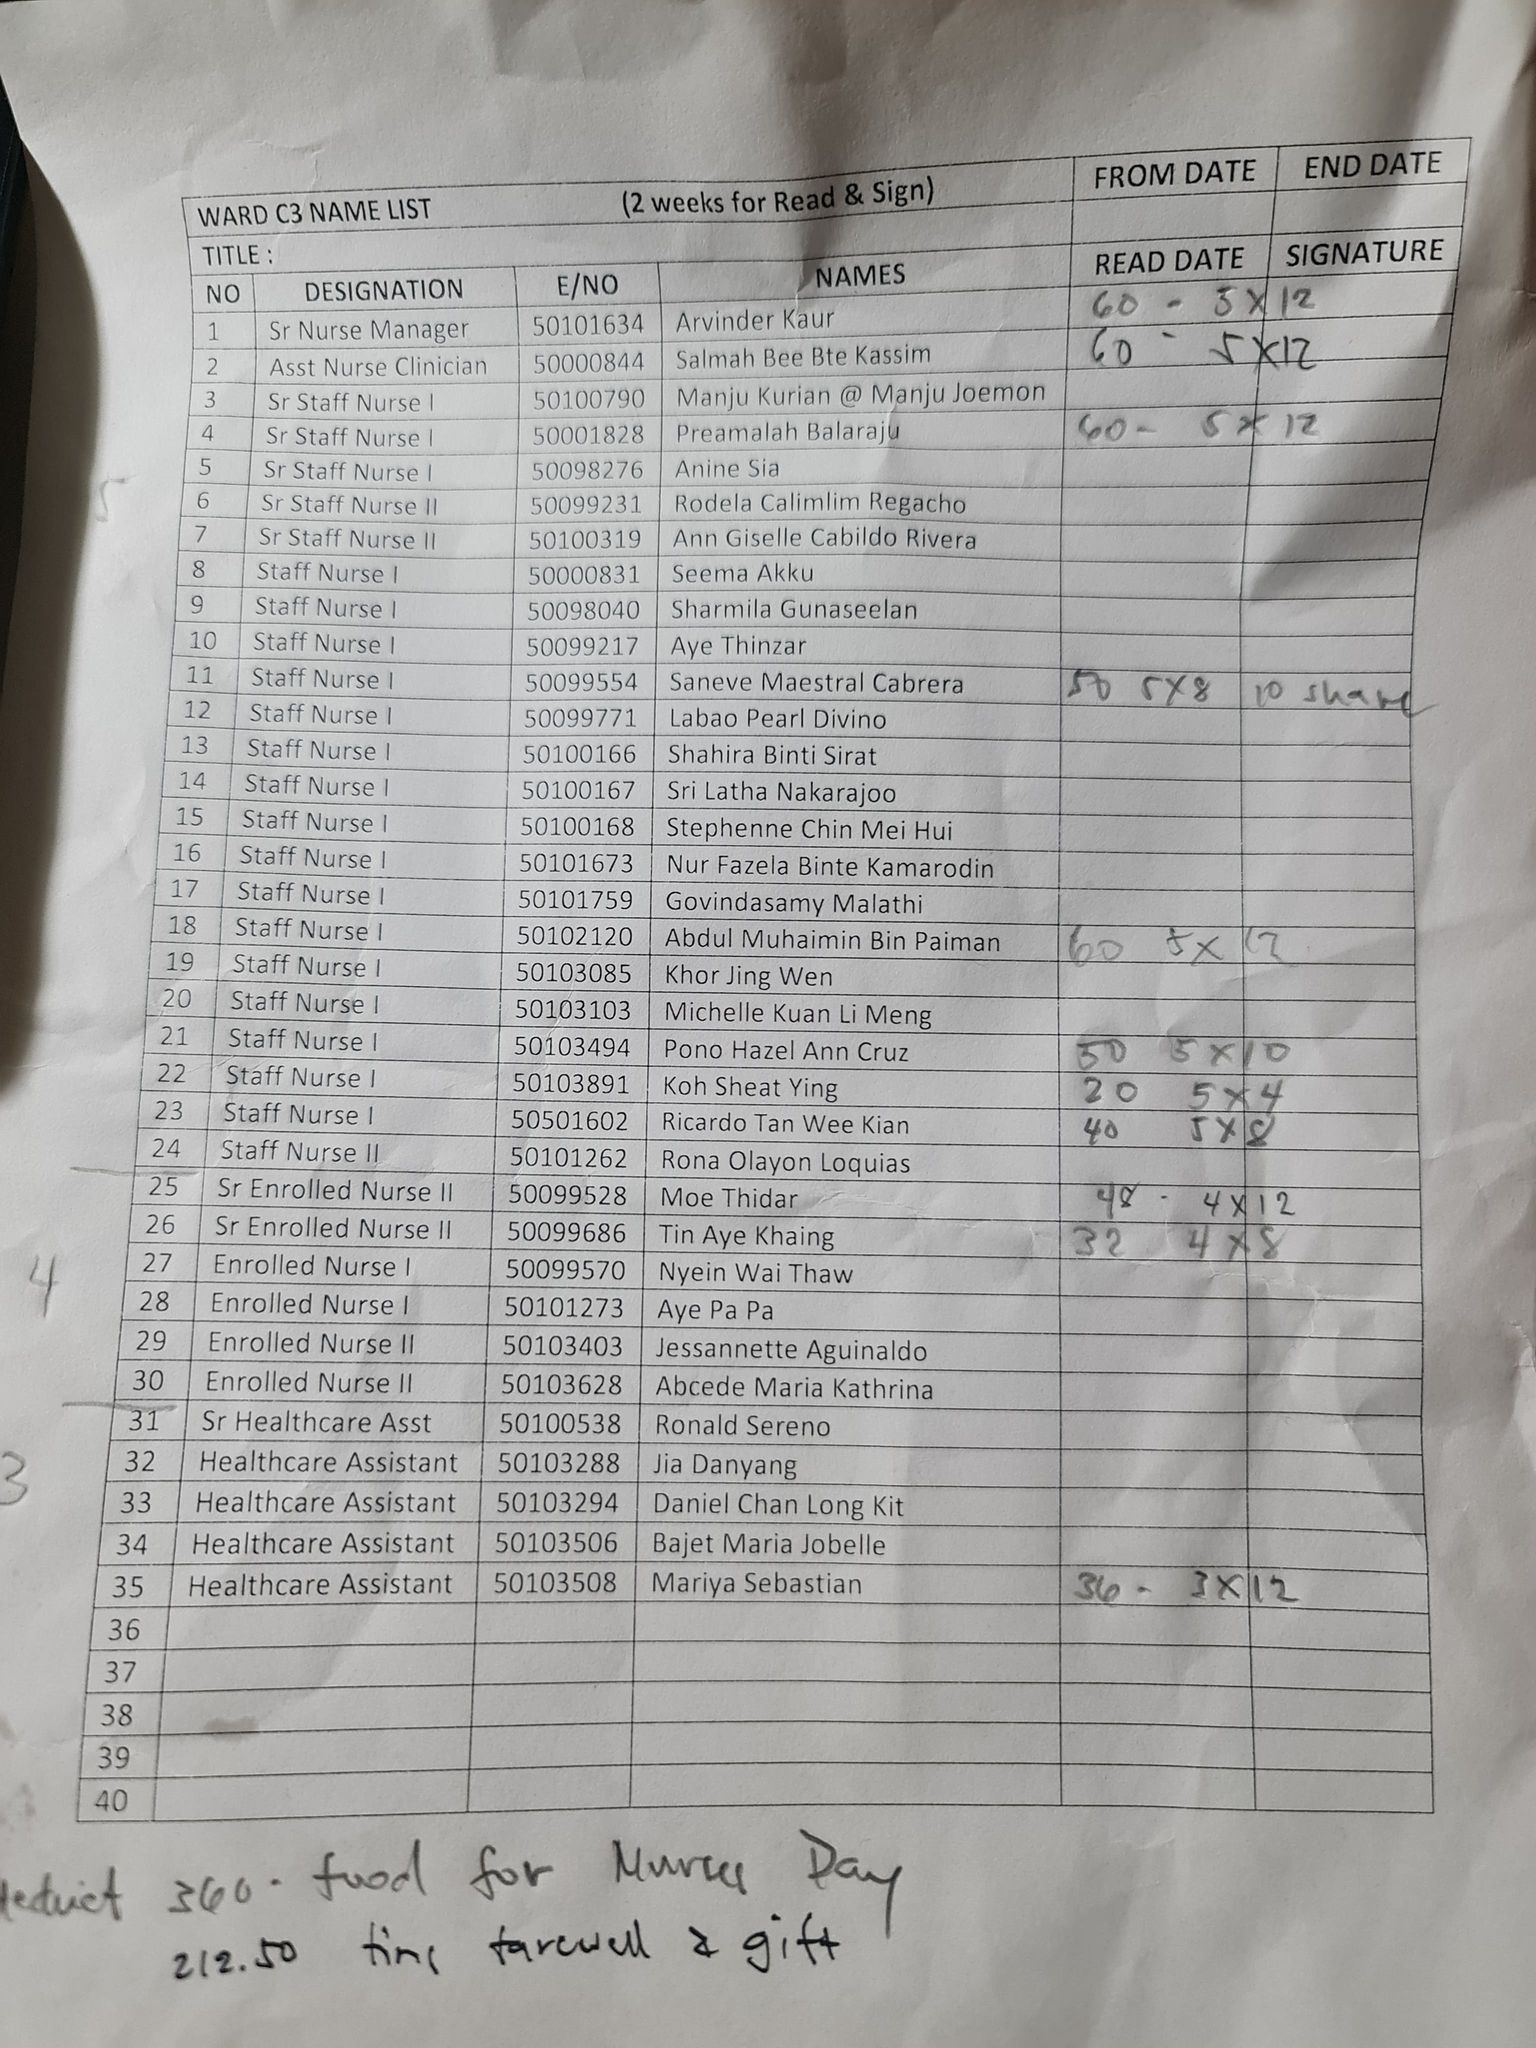 WARD C3 NAME LIST (2 weeks for Read & Sign) FROM DATE END DATE
TITLE :
NO DESIGNATION E/NO NAMES READ DATE SIGNATURE
1 Sr Nurse Manager 50101634 Arvinder Kaur 60 - 5 X 12
2 Asst Nurse Clinician 50000844 Salmah Bee Bte Kassim 60 - 5 X 12
3 Sr Staff Nurse I 50100790 Manju Kurian @ Manju Joemon
4 Sr Staff Nurse I 50001828 Preamalah Balaraju 60 - 5 X 12
5 Sr Staff Nurse I 50098276 Anine Sia
5
6 Sr Staff Nurse II 50099231 Rodela Calimlim Regacho
7 Sr Staff Nurse II 50100319 Ann Giselle Cabildo Rivera
8 Staff Nurse I 50000831 Seema Akku
9 Staff Nurse I 50098040 Sharmila Gunaseelan
10 Staff Nurse I 50099217 Aye Thinzar
11 Staff Nurse I 50099554 Saneve Maestral Cabrera 50 5X8 10 share
12 Staff Nurse I 50099771 Labao Pearl Divino
13 Staff Nurse I 50100166 Shahira Binti Sirat
14 Staff Nurse I 50100167 Sri Latha Nakarajoo
15 Staff Nurse I 50100168 Stephenne Chin Mei Hui
16 Staff Nurse I 50101673 Nur Fazela Binte Kamarodin
17 Staff Nurse I 50101759 Govindasamy Malathi
18 Staff Nurse I 50102120 Abdul Muhaimin Bin Paiman 60 5 X 12
19 Staff Nurse I 50103085 Khor Jing Wen
20 Staff Nurse I 50103103 Michelle Kuan Li Meng
21 Staff Nurse I 50103494 Pono Hazel Ann Cruz 50 5 X 10
22 Staff Nurse I 50103891 Koh Sheat Ying 20 5 X 4
23 Staff Nurse I 50501602 Ricardo Tan Wee Kian 40 5 X 8
24 Staff Nurse II 50101262 Rona Olayon Loquias
25 Sr Enrolled Nurse II 50099528 Moe Thidar 48 - 4 X 12
26 Sr Enrolled Nurse II 50099686 Tin Aye Khaing 32 4 X 8
27 Enrolled Nurse I 50099570 Nyein Wai Thaw
4
28 Enrolled Nurse I 50101273 Aye Pa Pa
29 Enrolled Nurse II 50103403 Jessannette Aguinaldo
30 Enrolled Nurse II 50103628 Abcede Maria Kathrina
31 Sr Healthcare Asst 50100538 Ronald Sereno
3
32 Healthcare Assistant 50103288 Jia Danyang
33 Healthcare Assistant 50103294 Daniel Chan Long Kit
34 Healthcare Assistant 50103506 Bajet Maria Jobelle
35 Healthcare Assistant 50103508 Mariya Sebastian 36 - 3 X 12
36
37
38
39
40
deduct 360 - food for Nurses Day
212.50 farewell & gift